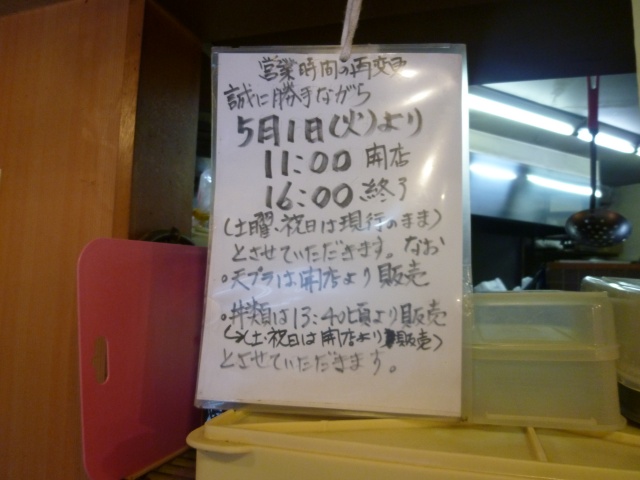 営業時間の再変更
誠に勝手ながら
5月1日(火)より
11:00 開店
16:00 終了
(土曜、祝日は現行のまま)
とさせていただきます。なお
・天プラは開店より販売
・丼類は13:40頃より販売
(→土・祝日は開店より販売)
とさせていただきます。